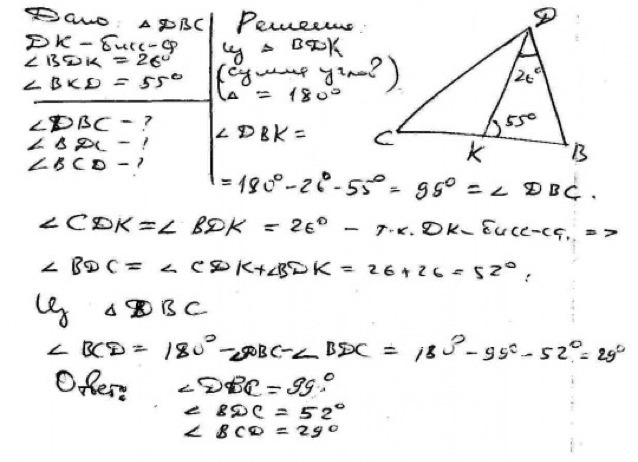 Дано: △DBC
DK – бисс-са
∠BDK = 26°
∠BKD = 55°
∠DBC – ?
∠BDC – ?
∠BCD – ?
Решение:
Из △ BDK
(сумма углов
△ = 180°)
∠DBK =
= 180° – 26° – 55° = 99° = ∠ DBC.
D
26°
55°
C
K
B
∠CDK = ∠ BDK = 26° – т.к. DK – бисс-са. =>
∠ BDC = ∠ CDK + ∠BDK = 26 + 26 = 52°.
Из △ DBC
∠ BCD = 180° – ∠DBC – ∠ BDC = 180° – 99° – 52° = 29°
Ответ: ∠DBC = 99°
∠ BDC = 52°
∠ BCD = 29°